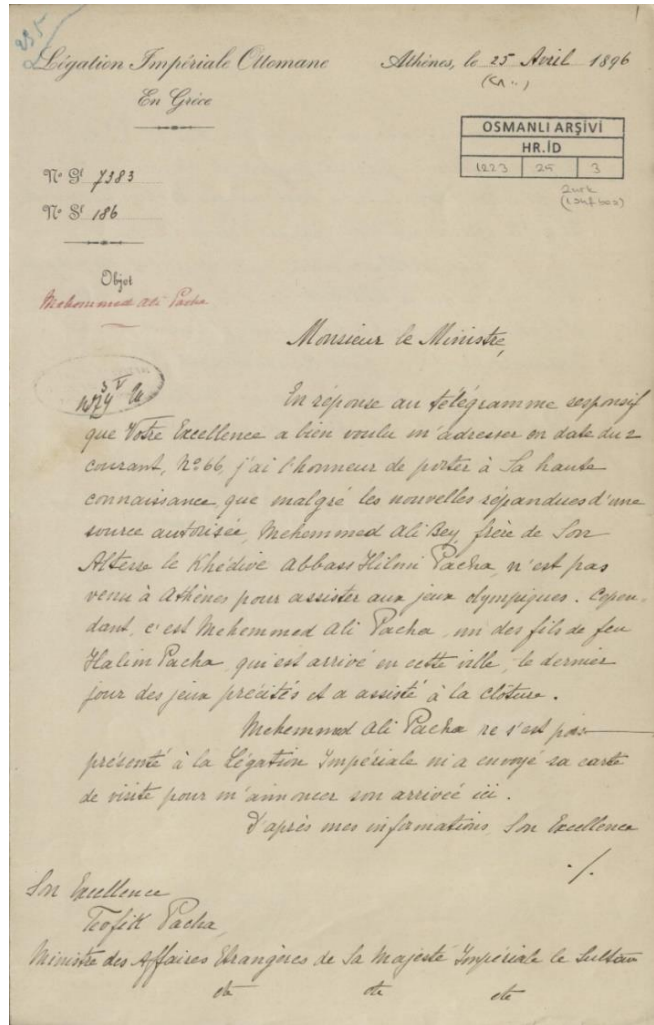 235
Légation Impériale Ottomane
En Grèce
Athènes, le 25 Avril 1896
OSMANLI ARŞİVİ
HR.İD
1223 25 3
No Gl 7383
No Sl 186
Objet
Mehemmed Ali Pacha
Monsieur le Ministre,
En réponse au télégramme responsif
que Votre Excellence a bien voulu m'adresser en date du 2
courant, No 66, j'ai l'honneur de porter à Sa haute
connaissance que malgré les nouvelles répandues d'une
source autorisée, Mehemmed Ali Bey, frère de Son
Altesse le Khédive Abbass Hilmi Pacha, n'est pas
venu à Athènes pour assister aux jeux olympiques. Cepen-
dant, c'est Mehemmed Ali Pacha, un des fils de feu
Halim Pacha, qui est arrivé en cette ville, le dernier
jour des jeux précités et a assisté à la clôture.
Mehemmed Ali Pacha ne s'est pas
présenté à la Légation Impériale ni a envoyé sa carte
de visite pour m'annoncer son arrivée ici.
D'après mes informations, Son Excellence
./.
Son Excellence
Tevfik Pacha,
Ministre des Affaires Etrangères de Sa Majesté Impériale le Sultan
etc etc etc